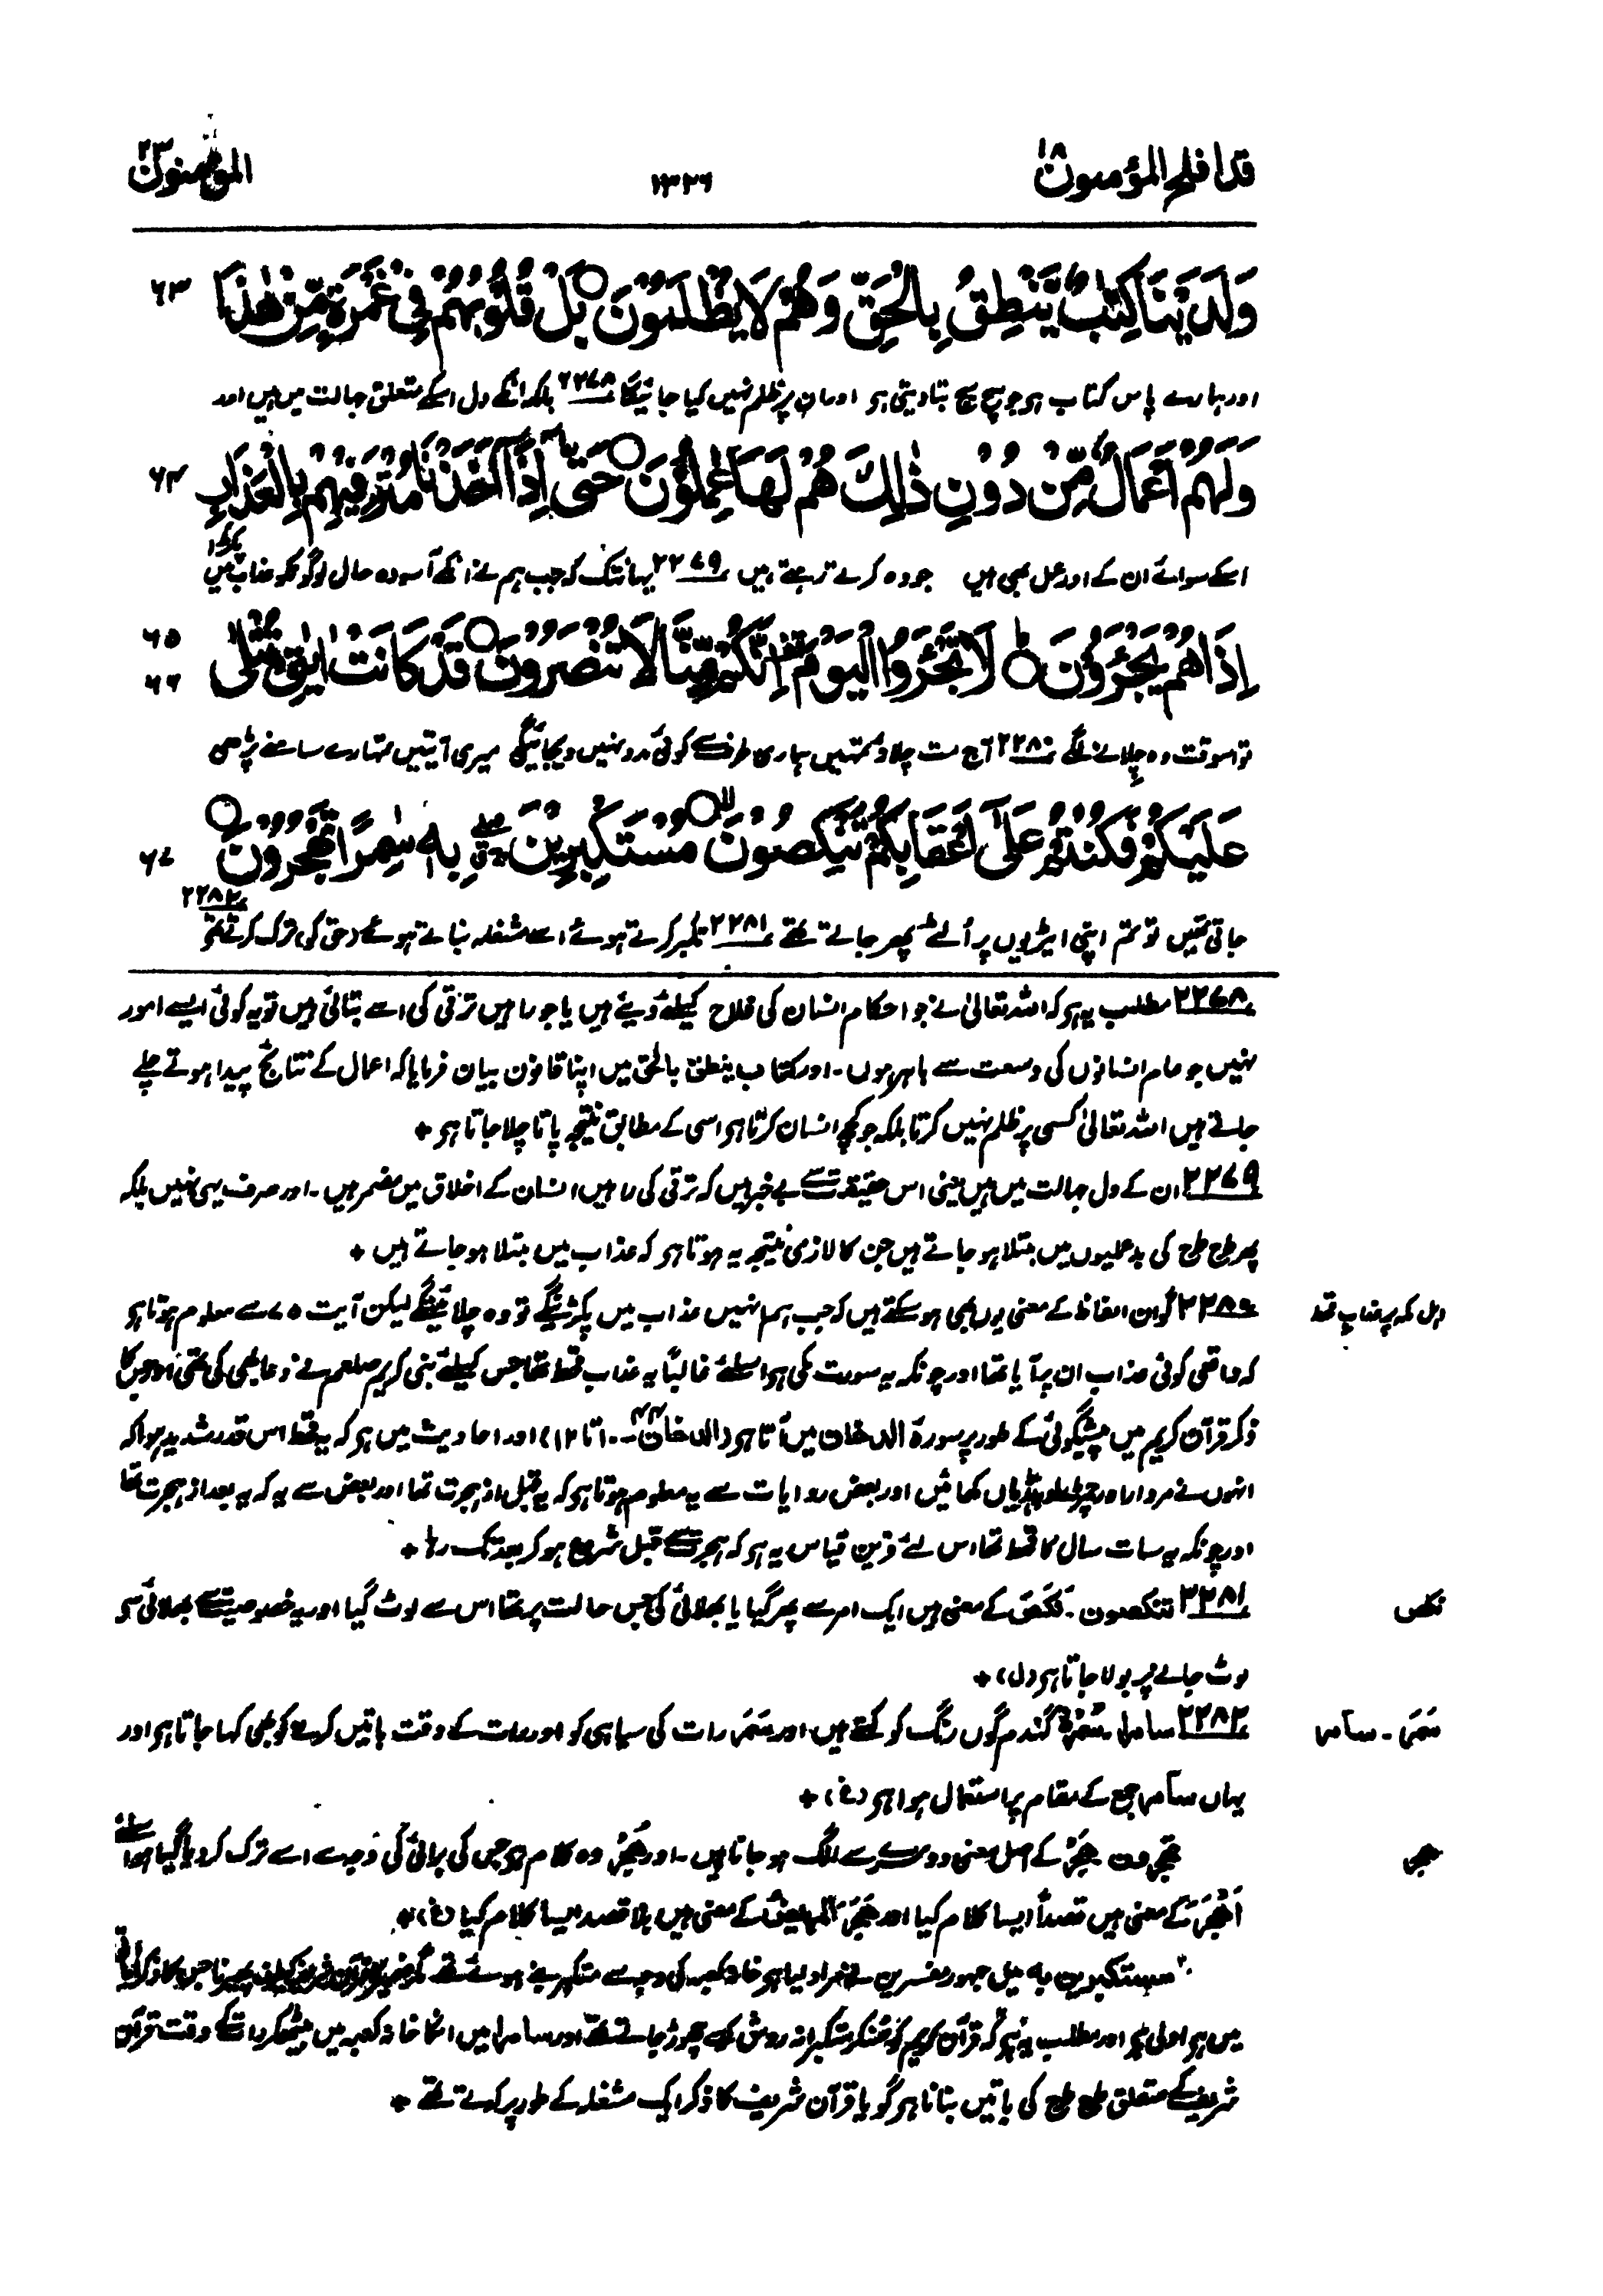 قد افلح المؤمنون ١٨
١٣٢٦
المؤمنون ٢٣
وَلَدَيْنَا كِتٰبٌ يَّنْطِقُ بِالْحَقِّ وَهُمْ لَا يُظْلَمُوْنَ ○ بَلْ قُلُوْبُهُمْ فِيْ غَمْرَةٍ مِّنْ هٰذَا ٦٣
اور ہمارے پاس کتاب ہو جو سچ سچ بتا دیتی ہو اور ان پر ظلم نہیں کیا جائیگا ۲۲۷۸ بلکہ انکے دل اسکے متعلق جہالت میں ہیں اور
وَلَهُمْ اَعْمَالٌ مِّنْ دُوْنِ ذٰلِكَ هُمْ لَهَا عٰمِلُوْنَ ○ حَتّٰٓى اِذَآ اَخَذْنَا مُتْرَفِيْهِمْ بِالْعَذَابِ ٦٤
اسکے سوائے ان کے اور عمل بھی ہیں جو وہ کرتے رہتے ہیں ۲۲۷۹ یہانتک کہ جب ہم نے انکے آسودہ حال لوگوں کو عذاب میں پکڑا
اِذَا هُمْ يَجْـَٔرُوْنَ ○ لَا تَجْـَٔرُوا الْيَوْمَ اِنَّكُمْ مِّنَّا لَا تُنْصَرُوْنَ ○ قَدْ كَانَتْ اٰيٰتِيْ تُتْلٰى ٦٥ ٦٦
تو اسوقت وہ چلانے لگے ۲۲۸۰ آج مت چلاؤ تمہیں ہماری طرف سے کوئی مدد نہیں دیجائیگی میری آیتیں تمہارے سامنے پڑھی
عَلَيْكُمْ فَكُنْتُمْ عَلٰٓى اَعْقَابِكُمْ تَنْكِصُوْنَ ○ مُسْتَكْبِرِيْنَ بِهٖ سٰمِرًا تَهْجُرُوْنَ ○ ٦٧
جاتی تھیں تو تم اپنی ایڑیوں پر اُلٹے پھر جاتے تھے ۲۲۸۱ تکبر کرتے ہوئے اسے مشغلہ بناتے ہوئے (حق کی) ترک کرتے تھے ۲۲۸۲
۲۲۷۸ مطلب یہ ہو کہ اللہ تعالیٰ نے جو احکام انسان کی فلاح کیلئے دیئے ہیں یا جو راہیں ترقی کی اسے بتائی ہیں تو یہ کوئی ایسے امور
نہیں جو عام انسانوں کی وسعت سے باہر ہوں۔ اور کتاب ینطق بالحق میں اپنا قانون بیان فرمایا کہ اعمال کے نتائج پیدا ہوتے چلے
جاتے ہیں اللہ تعالیٰ کسی پر ظلم نہیں کرتا بلکہ جو کچھ انسان کرتا ہو اسی کے مطابق نتیجہ پاتا چلا جاتا ہو +
۲۲۷۹ ان کے دل جہالت میں ہیں یعنی اس حقیقت سے بے خبر ہیں کہ ترقی کی راہیں انسان کے اخلاق میں مضمر ہیں۔ اور صرف یہی نہیں بلکہ
پھر طرح طرح کی بدعملیوں میں مبتلا ہو جاتے ہیں جن کا لازمی نتیجہ یہ ہوتا ہو کہ عذاب میں مبتلا ہو جاتے ہیں +
اہل مکہ پر عذاب قحط
۲۲۸۰ گو ان الفاظ کے معنی یوں بھی ہو سکتے ہیں کہ جب ہم انہیں عذاب میں پکڑینگے تو وہ چلائینگے لیکن آیت ۷۵ سے معلوم ہوتا ہو
کہ واقعی کوئی عذاب ان پر آیا تھا اور چونکہ یہ سورت مکی ہو اسلئے غالباً یہ عذاب قحط تھا جس کیلئے نبی کریم صلعم نے دعا بھی کی تھی اور جس کا
ذکر قرآن کریم میں پیشگوئی کے طور پر سورۃ الدخان میں آتا ہو (الدخان ۴۴۔۱۰ تا ۱۲) اور احادیث میں ہو کہ یہ قحط اس قدر شدید ہوا کہ
انہوں نے مردار اور چمڑے اور ہڈیاں کھائیں اور بعض روایات سے یہ معلوم ہوتا ہو کہ یہ قبل از ہجرت تھا اور بعض سے یہ کہ یہ بعد از ہجرت تھا
اور چونکہ یہ سات سال کا قحط تھا اس لئے قرین قیاس یہ ہو کہ ہجرت سے قبل شروع ہو کر بعد تک رہا +
نکص
۲۲۸۱ تنکصون۔ نَكَصَ کے معنی ہیں ایک امر سے پھر گیا یا بھلائی کی جس حالت پر تھا اس سے لوٹ گیا اور یہ خصوصیت سے بھلائی سے
لوٹ جانے پر بولا جاتا ہو (ل) +
سَمَر۔ سامر
۲۲۸۲ سامرا۔ سُمْرَة گندم گوں رنگ کو کہتے ہیں اور سَمَر رات کی سیاہی کو اور رات کے وقت باتیں کرنے کو بھی کہا جاتا ہو اور
یہاں سامر جمع کے مقام پر استعمال ہوا ہو (غ) +
ھجر
تھجرون ھَجْر کے اصل معنی دوسرے سے الگ ہو جانا ہیں۔ اور ھُجْر وہ کلام ہو جس کی برائی کی وجہ سے اسے ترک کر دیا گیا ہو اسلئے
اَھْجَرَ کے معنی ہیں قصداً ایسا کلام کیا اور ھَجَرَ المریض کے معنی ہیں بلا قصد ایسا کلام کیا (غ) +
مستکبرین بہ میں جمہور مفسرین نے مراد لیا ہو خانہ کعبہ کی وجہ سے متکبر بنے ہوئے تھے
میں ہو اولیٰ ہو اور مطلب یہ ہو کہ قرآن کریم کو سنکر متکبرانہ روش سے چھوڑ جاتے تھے اور سامرا میں انکا خانہ کعبہ میں بیٹھکر رات کے وقت قرآن
شریف کے متعلق طرح طرح کی باتیں بنانا ہو گویا قرآن شریف کا ذکر ایک مشغلہ کے طور پر کرتے تھے +